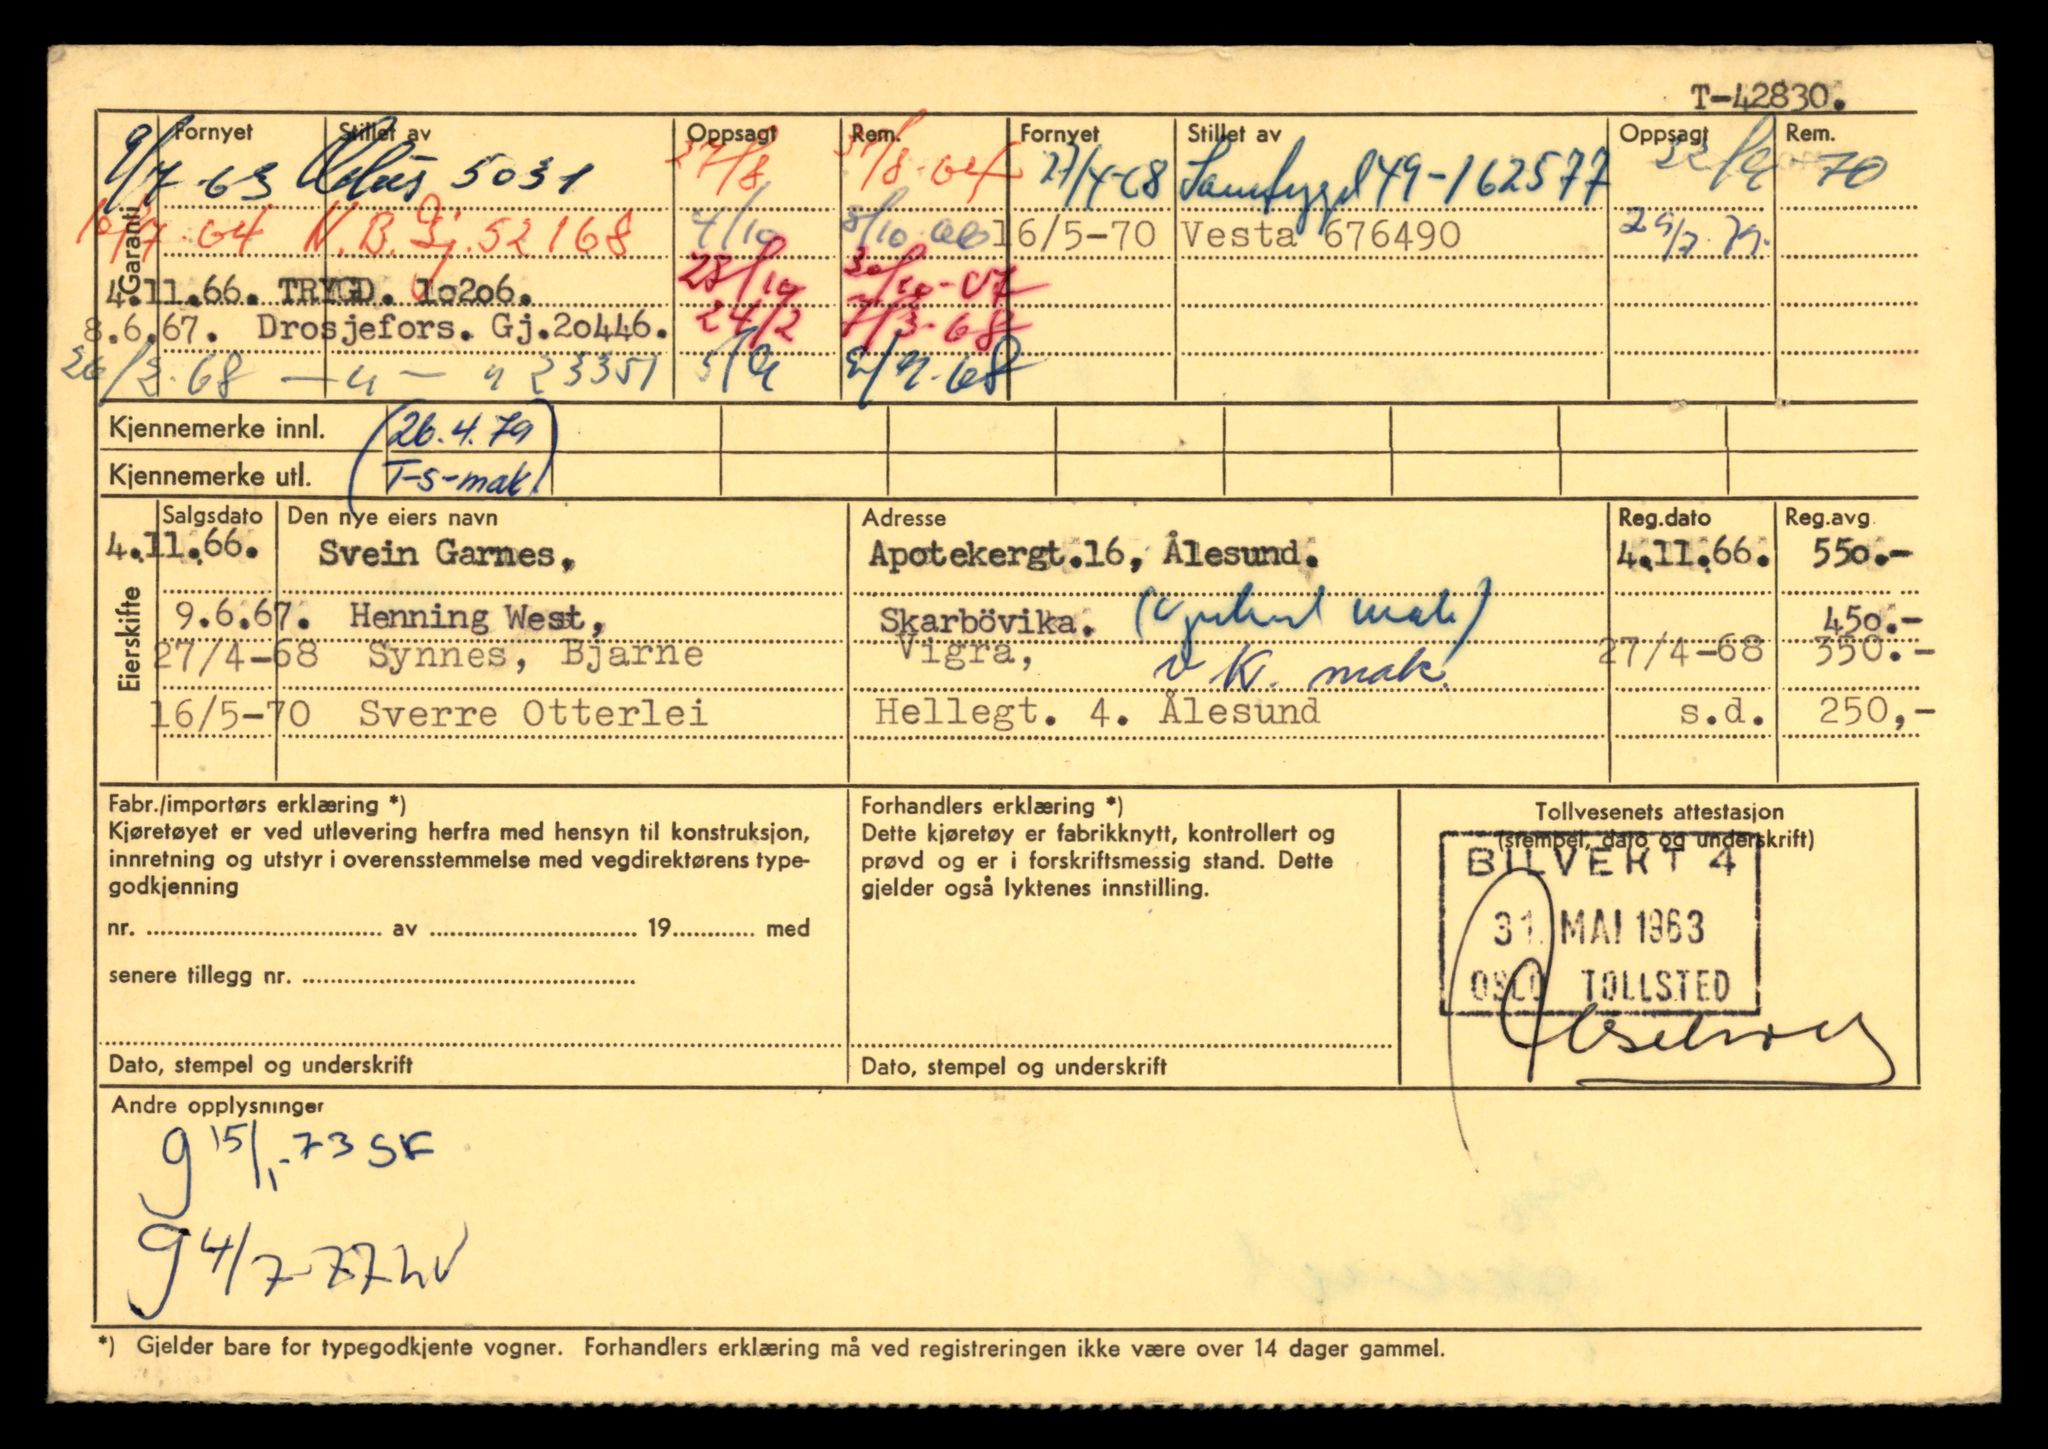 T-42830.
Fornyet Stillet av Oppsagt Rem. Fornyet Stillet av Oppsagt Rem.
9/7-63 5031 27/8 31/8-64 27/4-68 Samtygd 49-162577 22/9 70
Garanti
10/7-64 N.B.Gj. 52168 4/10 8/10-66 16/5-70 Vesta 676490 25/7.79.
4.11.66. TRYGD. 10206. 28/10 30/10-67
8.6.67. Drosjefors. Gj.20446. 24/2 7/3-68
26/3-68 — " — " 23351 5/9 9/9-68
Kjennemerke innl. (26.4.79
Kjennemerke utl. T-S-mak.)
Eierskifte
Salgsdato Den nye eiers navn Adresse Reg.dato Reg.avg
4.11.66. Svein Garnes, Apotekergt.16, Ålesund. 4.11.66. 550.-
9.6.67. Henning West, Skarbövika. mak) 450.-
27/4-68 Synnes, Bjarne Vigra, v K. mak. 27/4-68 350.-
16/5-70 Sverre Otterlei Hellegt. 4. Ålesund s.d. 250,-
Fabr./importørs erklæring *)
Kjøretøyet er ved utlevering herfra med hensyn til konstruksjon,
innretning og utstyr i overensstemmelse med vegdirektørens type-
godkjenning
nr. ........ av ........ 19........ med
senere tillegg nr. ........
Dato, stempel og underskrift
Forhandlers erklæring *)
Dette kjøretøy er fabrikknytt, kontrollert og
prøvd og er i forskriftsmessig stand. Dette
gjelder også lyktenes innstilling.
Dato, stempel og underskrift
Tollvesenets attestasjon
(stempel, dato og underskrift)
BILVEKT 4
31. MAI 1963
OSLO TOLLSTED
Andre opplysninger
g 15/1-73 SF
g 4/7-77 LV
*) Gjelder bare for typegodkjente vogner. Forhandlers erklæring må ved registreringen ikke være over 14 dager gammel.